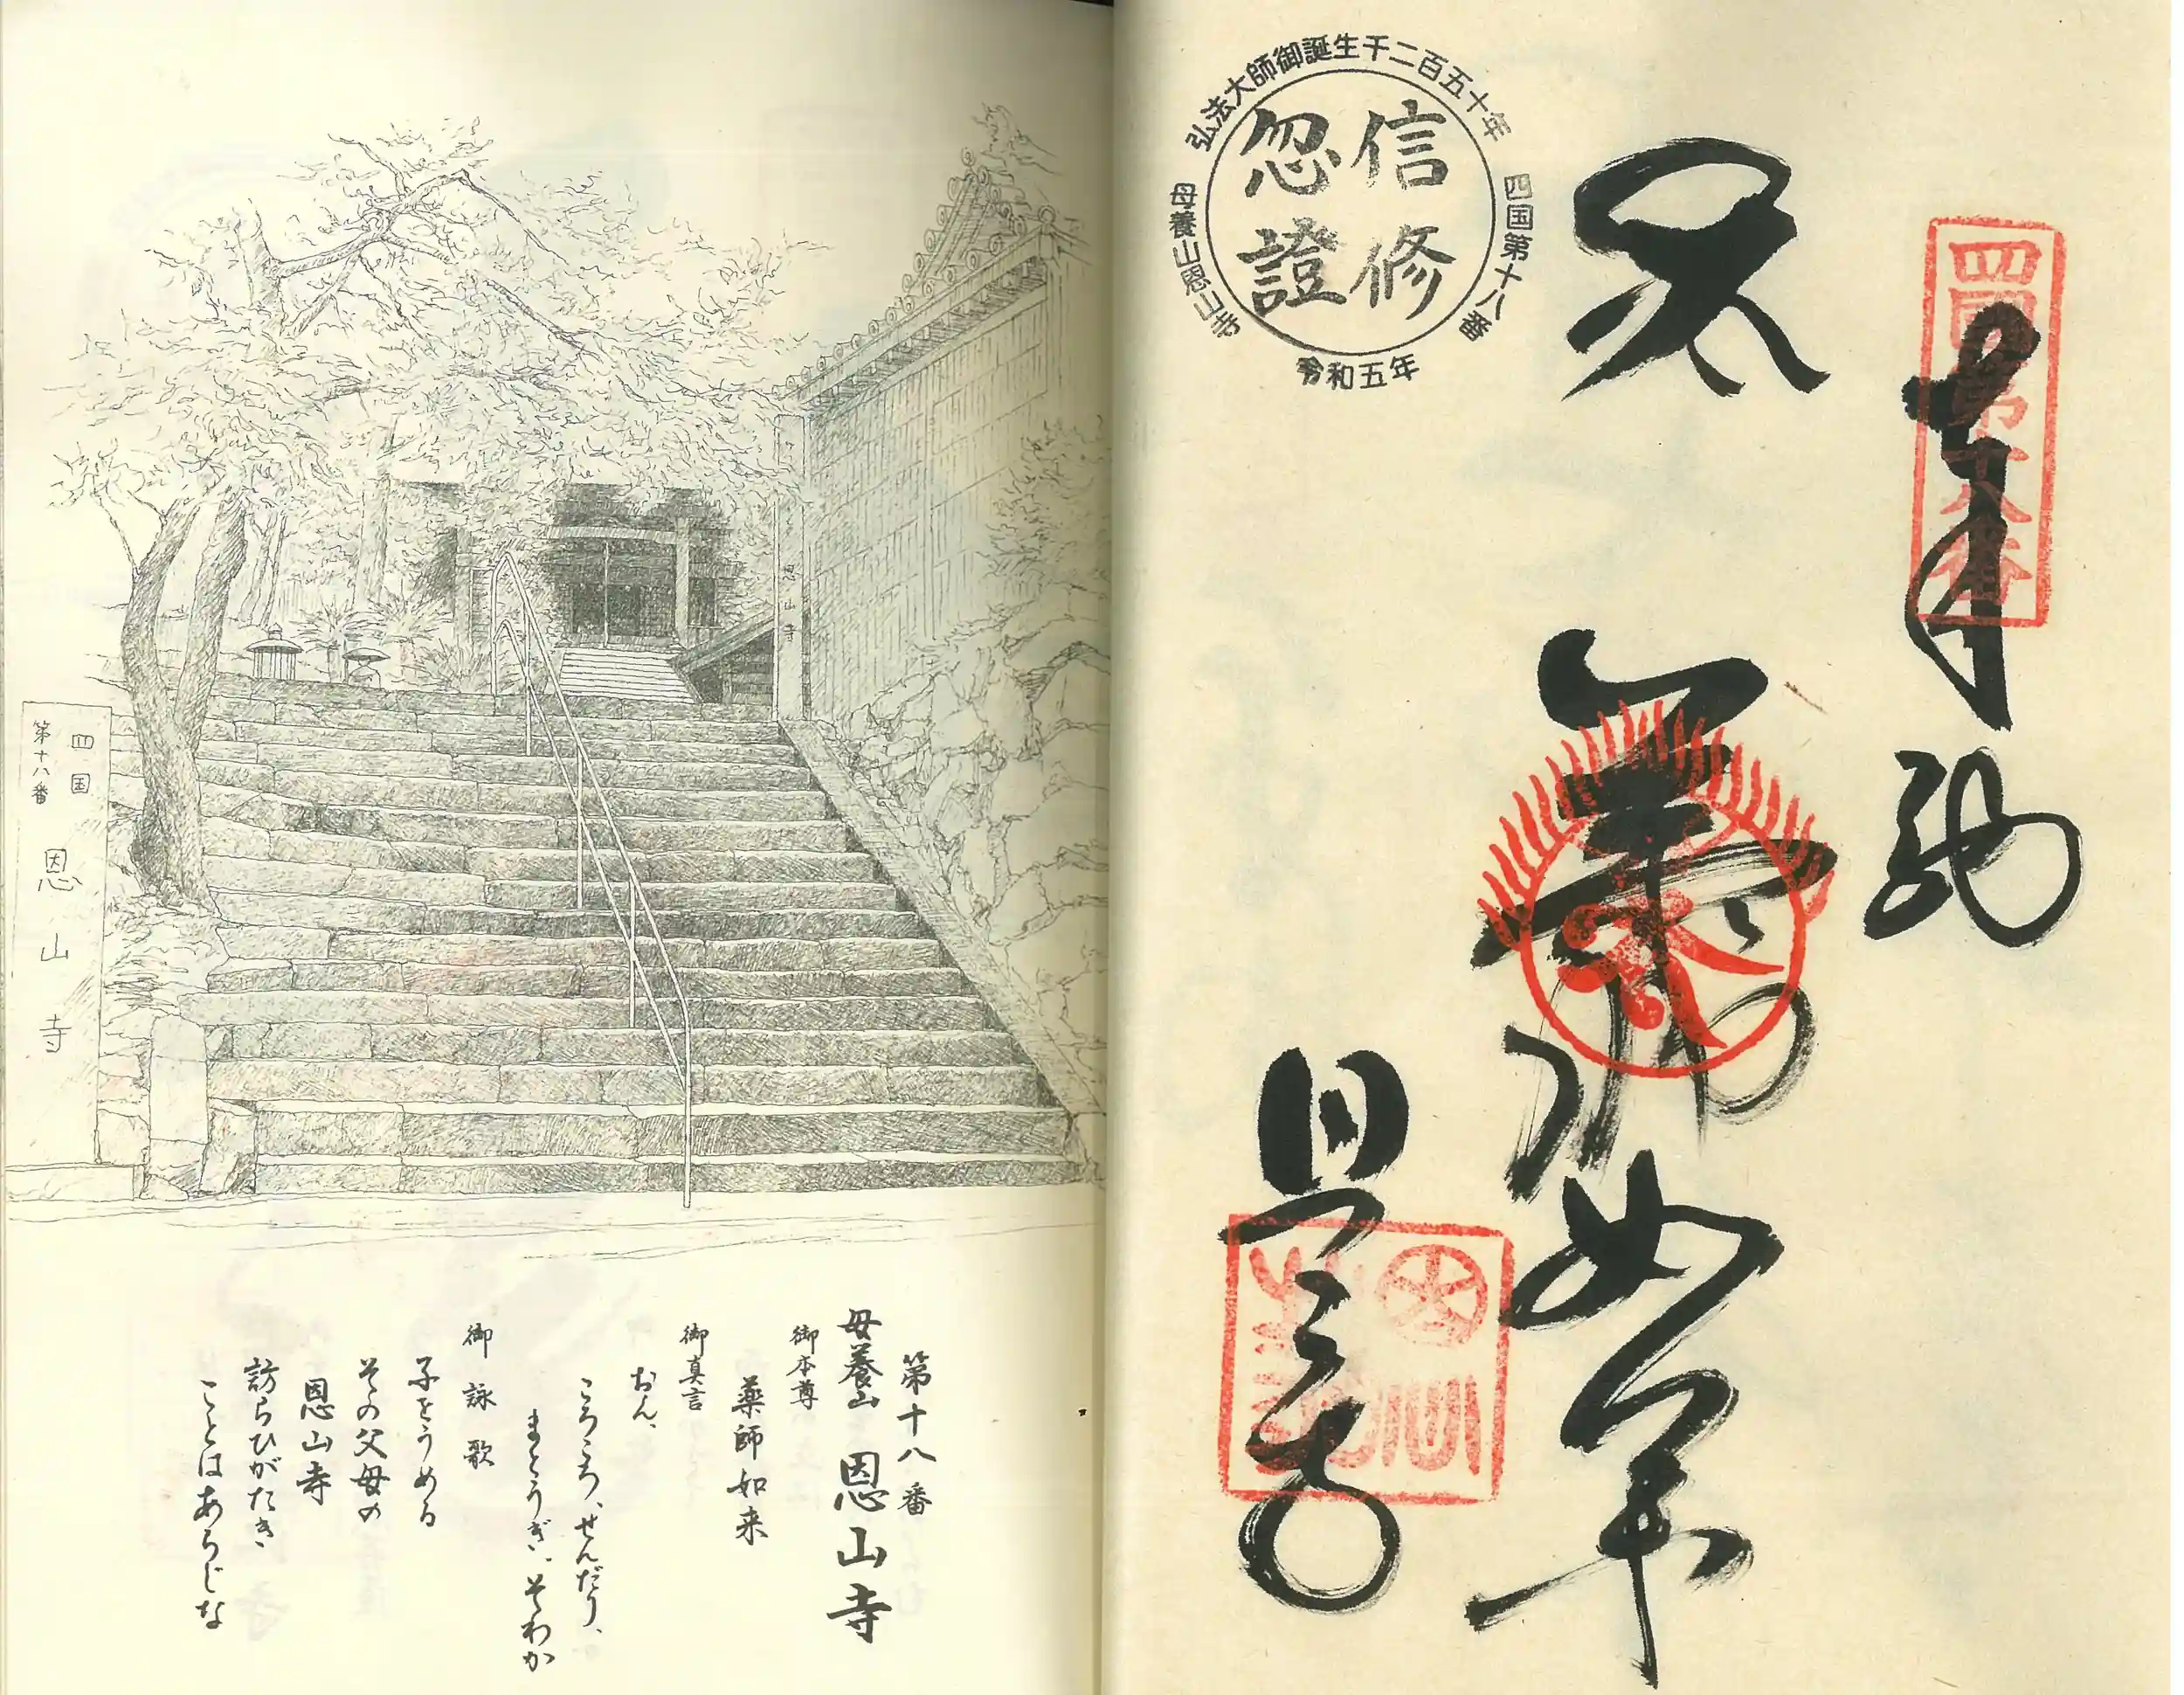 四国
第十八番
恩山寺
恩山寺
第十八番
母養山 恩山寺
御本尊
薬師如来
御真言
おん、
ころころ、せんだり、
まとうぎ、そわか
御詠歌
子をうめる
その父母の
恩山寺
訪らひがたき
ことはあらじな
四國第十八番
奉納
薬師如来
恩山寺
弘法大師御誕生千二百五十年
四国第十八番
母養山恩山寺
令和五年
信修
忽證